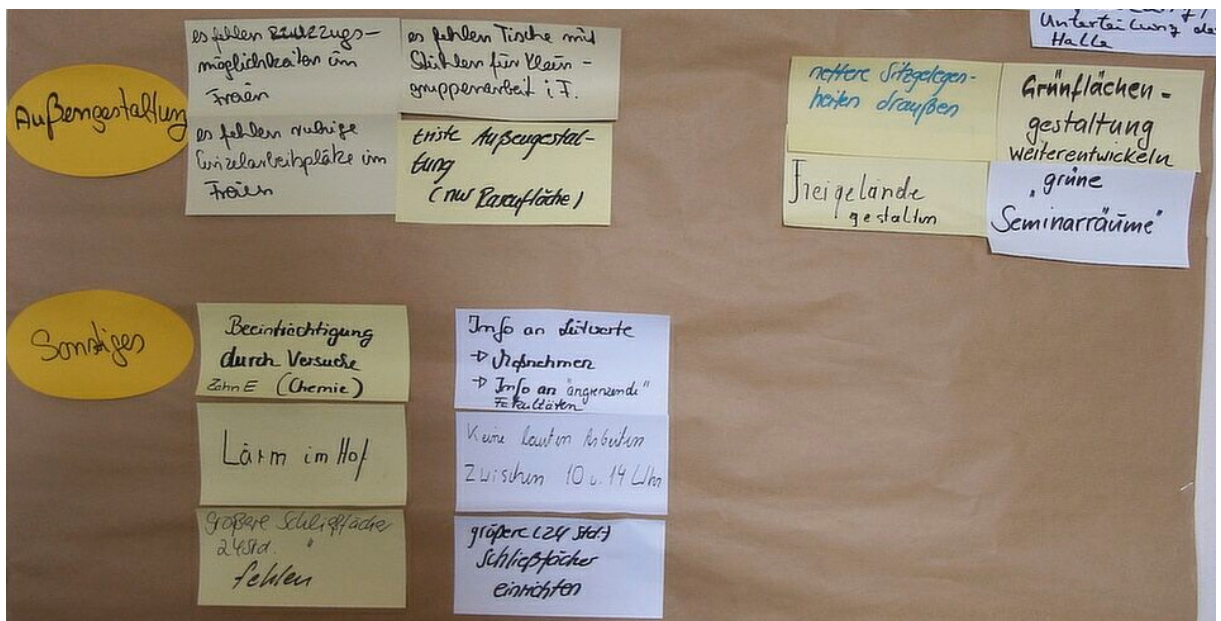 Unterteilung der
Halle
Außengestaltung
es fehlen Rückzugs-
möglichkeiten im
Freien
es fehlen Tische mit
Stühlen für Klein-
gruppenarbeit i. F.
es fehlen ruhige
Einzelarbeitsplätze im
Freien
triste Außengestal-
tung
(nur Rasenfläche)
nettere Sitzgelegen-
heiten draußen
Grünflächen-
gestaltung
weiterentwickeln
Freigelände
gestalten
"grüne
Seminarräume"
Sonstiges
Beeinträchtigung
durch Versuche
Zehn E (Chemie)
Info an Leitwarte
→ Maßnahmen
→ Info an "angrenzende"
Fakultäten
Lärm im Hof
Keine lauten Arbeiten
Zwischen 10 u. 14 Uhr
größere Schließfächer
24 Std. "
fehlen
größere (24 Std.)
Schließfächer
einrichten